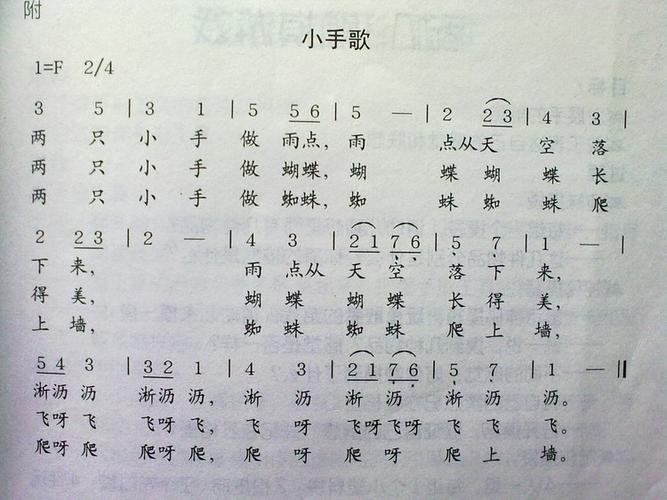 附
小手歌
1=F 2/4
3 5 | 3 1 | 5 5 6 | 5 — | 2 2 3 | 4 3 |
两 只 小 手 做 雨点，雨 点从天 空 落
两 只 小 手 做 蝴蝶，蝴 蝶 蝴 蝶 长
两 只 小 手 做 蜘蛛，蜘 蛛 蜘 蛛 爬
2 2 3 | 2 — | 4 3 | 2 1 7 6 | 5 7 | 1 — |
下 来， 雨 点从 天 空 落 下 来，
得 美， 蝴 蝶 蝴 蝶 长 得 美，
上 墙， 蜘 蛛 蜘 蛛 爬 上 墙，
5 4 3 | 3 2 1 | 4 3 | 2 1 7 6 | 5 7 | 1 — ‖
淅沥 沥 淅沥 沥， 淅 沥 淅 沥 淅 沥 沥。
飞呀 飞 飞呀 飞， 飞 呀 飞 呀 飞 飞 飞。
爬呀 爬 爬呀 爬， 爬 呀 爬 呀 爬 上 墙。